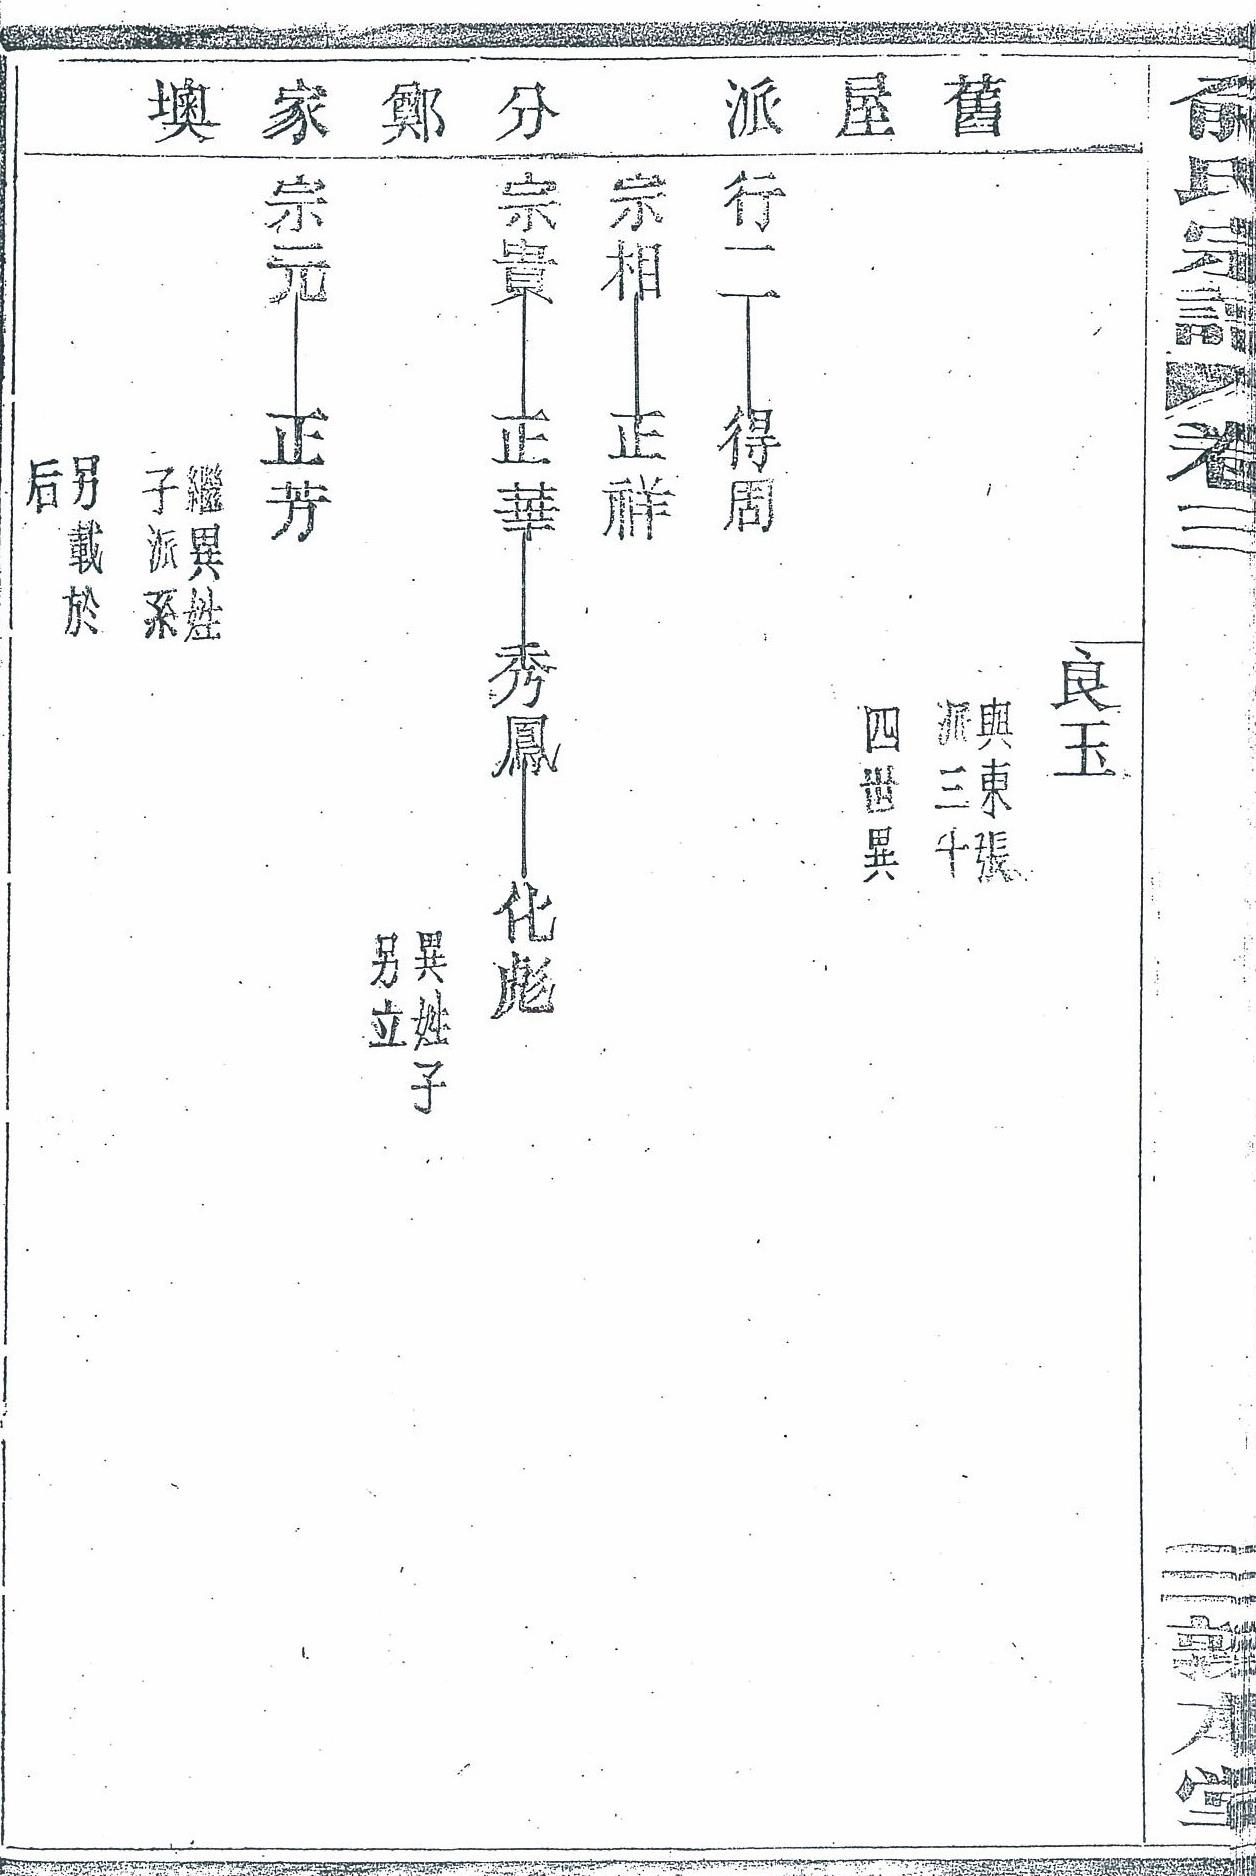 俞氏宗譜 卷三
三 敦本堂
舊屋派 分鄭家墺
良玉
與東張
派三十
四世異
行二 得周
宗相 正祥
宗貴 正華 秀鳳 化彪
異姓子
另立
宗元 正芳
繼異姓
子派系
另載於
后